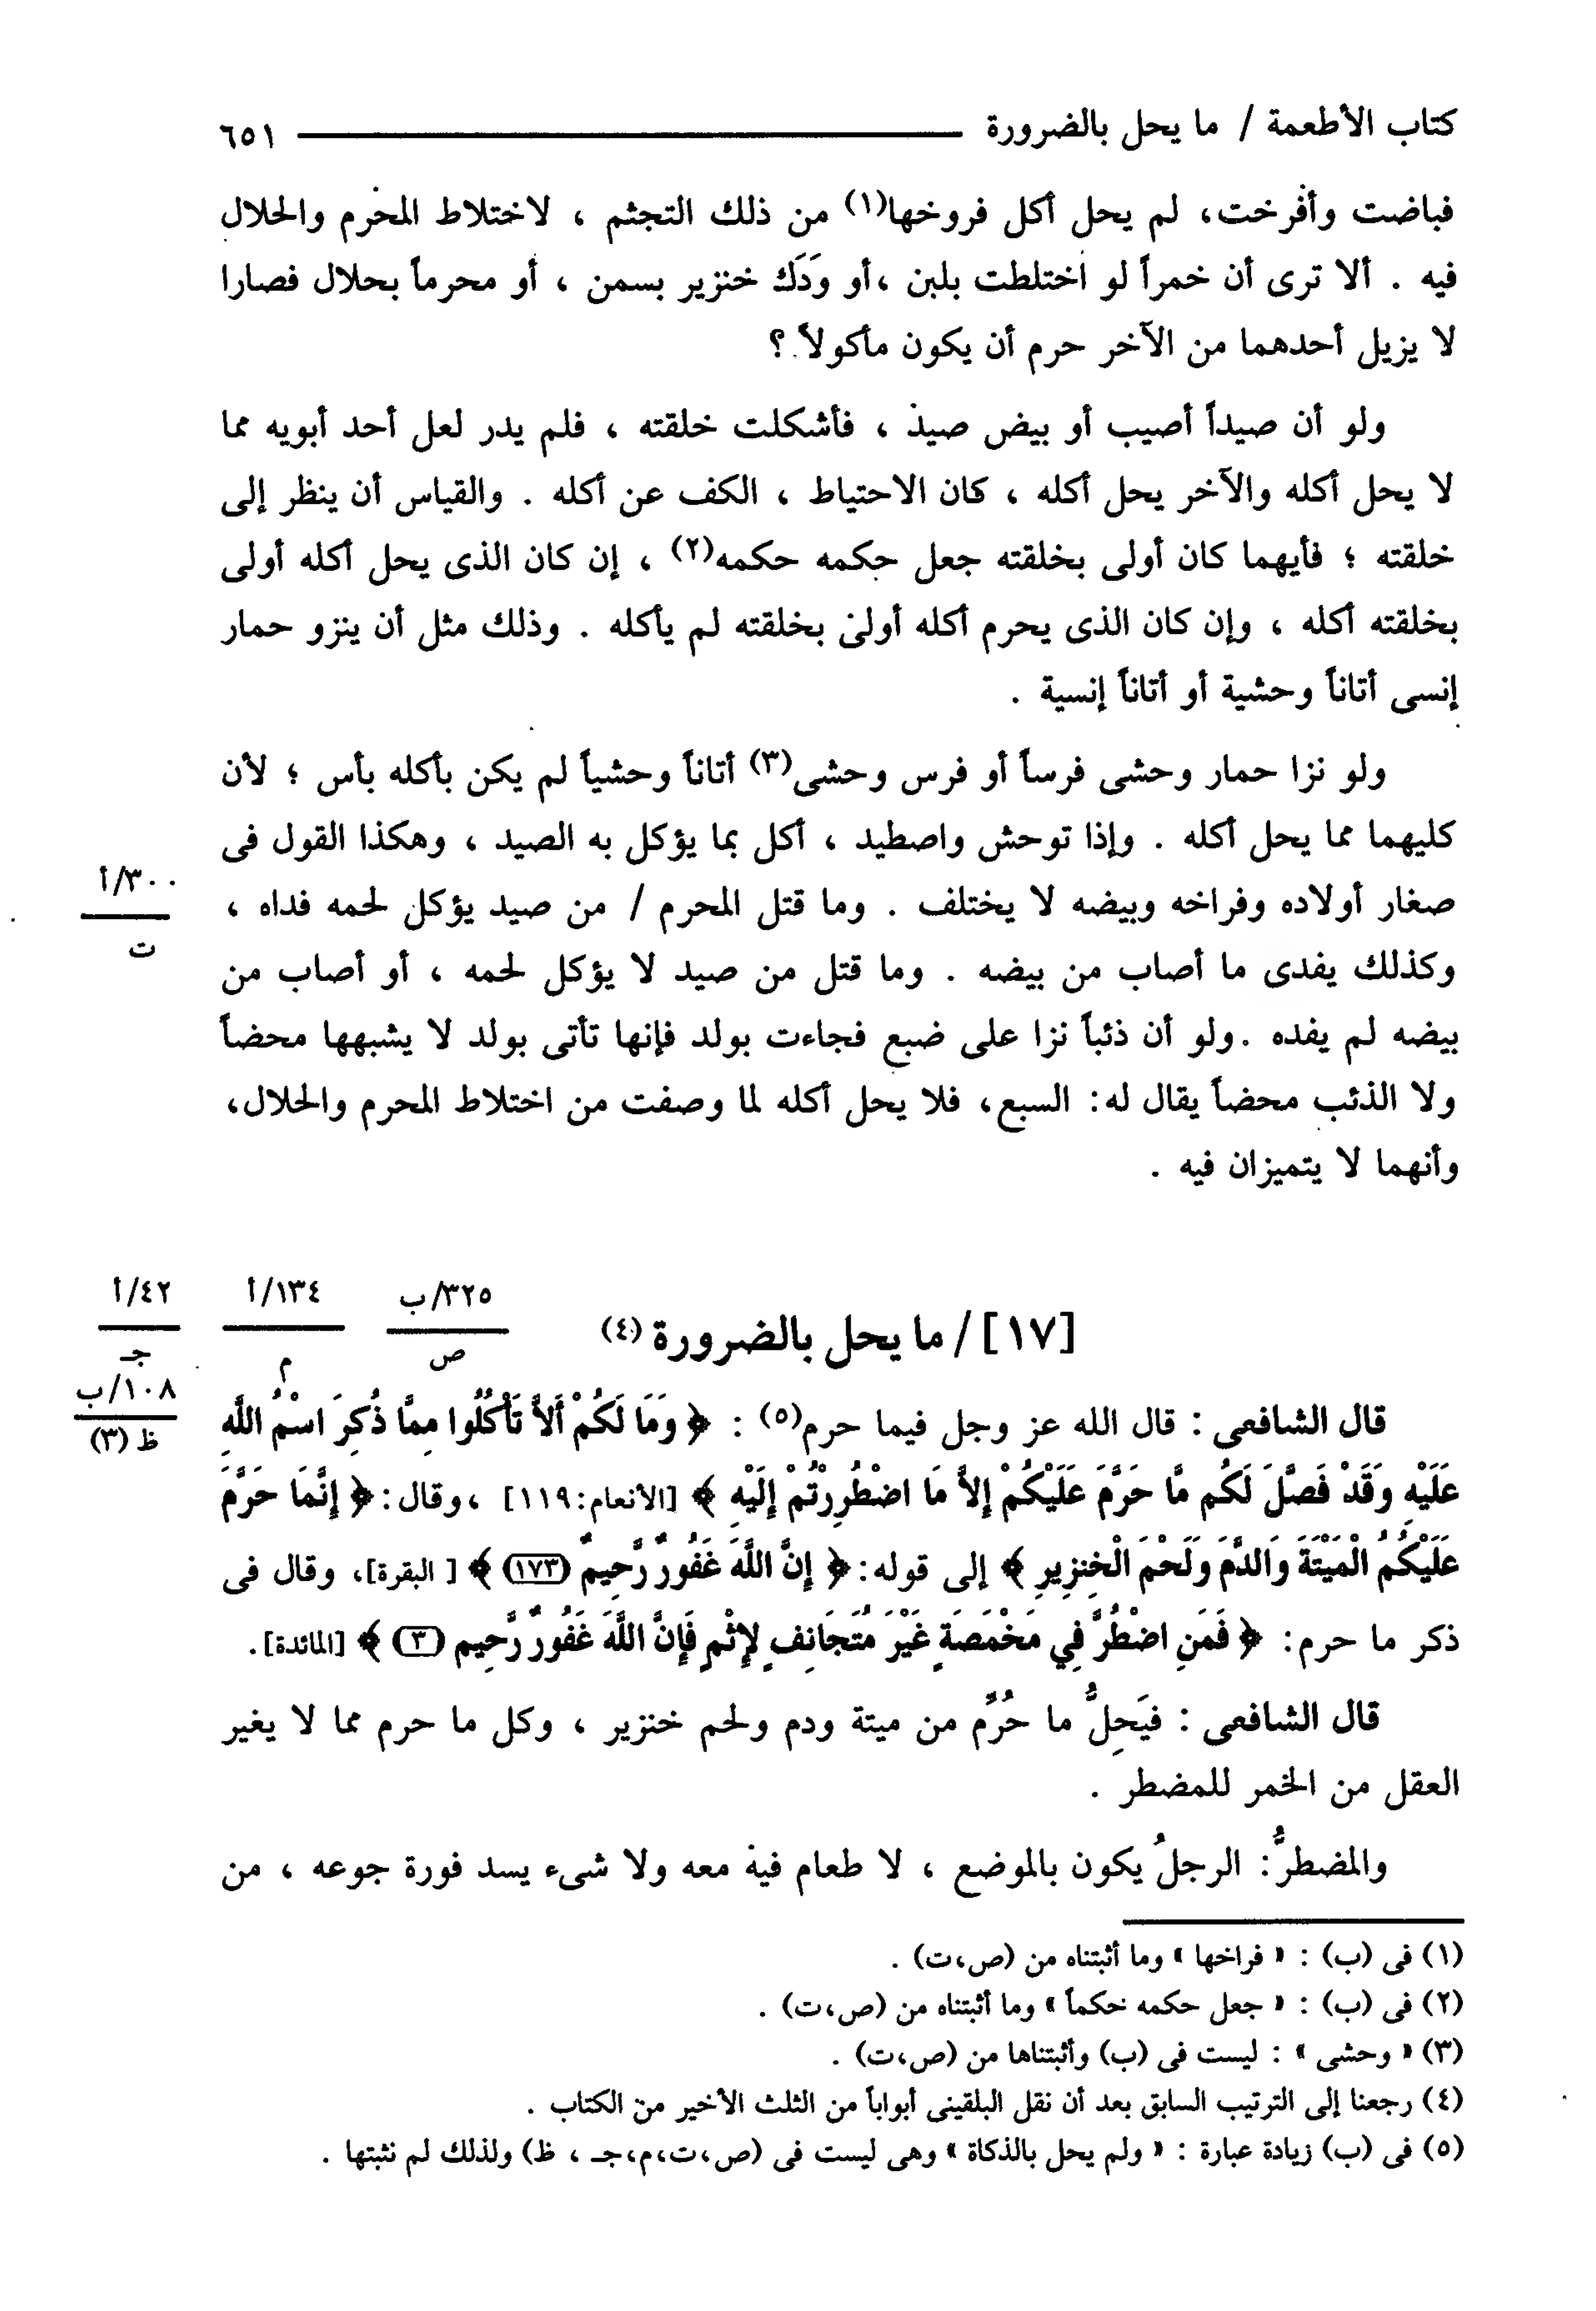 كتاب الأطعمة / ما يحل بالضرورة ٦٥١
فباضت وأفرخت، لم يحل أكل فروخها(١) من ذلك التجثم ، لاختلاط المحرم والحلال
فيه . ألا ترى أن خمراً لو اختلطت بلبن ،أو وَدَك خنزير بسمن ، أو محرماً بحلال فصارا
لا يزيل أحدهما من الآخر حرم أن يكون مأكولاً ؟
ولو أن صيداً أصيب أو بيض صيد ، فأشكلت خلقته ، فلم يدر لعل أحد أبويه مما
لا يحل أكله والآخر يحل أكله ، كان الاحتياط ، الكف عن أكله . والقياس أن ينظر إلى
خلقته ؛ فأيهما كان أولى بخلقته جعل حكمه حكمه(٢) ، إن كان الذى يحل أكله أولى
بخلقته أكله ، وإن كان الذى يحرم أكله أولى بخلقته لم يأكله . وذلك مثل أن ينزو حمار
إنسى أتاناً وحشية أو أتاناً إنسية .
ولو نزا حمار وحشى فرساً أو فرس وحشى(٣) أتاناً وحشياً لم يكن بأكله بأس ؛ لأن
كليهما مما يحل أكله . وإذا توحش واصطيد ، أكل بما يؤكل به الصيد ، وهكذا القول فى
٣٠٠/أ
صغار أولاده وفراخه وبيضه لا يختلف . وما قتل المحرم / من صيد يؤكل لحمه فداه ،
ت
وكذلك يفدى ما أصاب من بيضه . وما قتل من صيد لا يؤكل لحمه ، أو أصاب من
بيضه لم يفده .ولو أن ذئباً نزا على ضبع فجاءت بولد فإنها تأتى بولد لا يشبهها محضاً
ولا الذئب محضاً يقال له: السبع، فلا يحل أكله لما وصفت من اختلاط المحرم والحلال،
وأنهما لا يتميزان فيه .
٣٢٥/ب ١٣٤/أ ٤٢/أ
[١٧] / ما يحل بالضرورة (٤)
ص م جـ
١٠٨/ب
ظ (٣)
قال الشافعى : قال الله عز وجل فيما حرم(٥) : ﴿ وَمَا لَكُمْ أَلاَّ تَأْكُلُوا مِمَّا ذُكِرَ اسْمُ اللَّهِ
عَلَيْهِ وَقَدْ فَصَّلَ لَكُم مَّا حَرَّمَ عَلَيْكُمْ إِلاَّ مَا اضْطُرِرْتُمْ إِلَيْهِ ﴾ [الأنعام:١١٩] ،وقال: ﴿ إِنَّمَا حَرَّمَ
عَلَيْكُمُ الْمَيْتَةَ وَالدَّمَ وَلَحْمَ الْخِنزِيرِ ﴾ إلى قوله: ﴿ إِنَّ اللَّهَ غَفُورٌ رَّحِيمٌ (١٧٣) ﴾ [ البقرة]، وقال فى
ذكر ما حرم: ﴿ فَمَنِ اضْطُرَّ فِي مَخْمَصَةٍ غَيْرَ مُتَجَانِفٍ لإِثْمٍ فَإِنَّ اللَّهَ غَفُورٌ رَّحِيم (٣) ﴾ [المائدة].
قال الشافعى : فيَحِلُّ ما حُرِّم من ميتة ودم ولحم خنزير ، وكل ما حرم مما لا يغير
العقل من الخمر للمضطر .
والمضطرُّ: الرجلُ يكون بالموضع ، لا طعام فيه معه ولا شىء يسد فورة جوعه ، من
(١) فى (ب) : « فراخها » وما أثبتناه من (ص،ت) .
(٢) فى (ب) : « جعل حكمه حكماً » وما أثبتناه من (ص،ت) .
(٣) « وحشى » : ليست فى (ب) وأثبتناها من (ص،ت) .
(٤) رجعنا إلى الترتيب السابق بعد أن نقل البلقينى أبواباً من الثلث الأخير من الكتاب .
(٥) فى (ب) زيادة عبارة : « ولم يحل بالذكاة » وهى ليست فى (ص،ت،م،جـ ، ظ) ولذلك لم نثبتها .